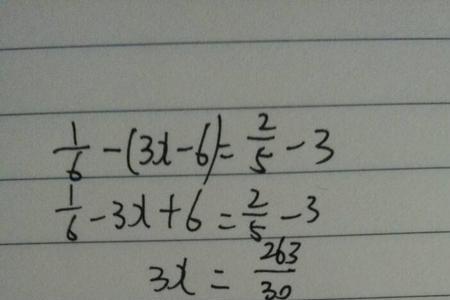 1/6 - (3x - 6) = 2/5 - 3
1/6 - 3x + 6 = 2/5 - 3
3x = 263/30